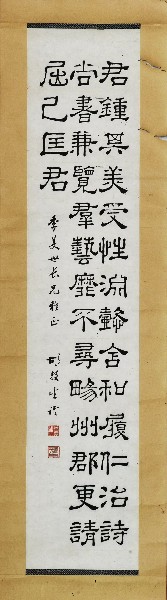 君鍾其美受性淵懿含和履仁治詩
尚書兼覽羣藝靡不尋暢州郡更請
屈己匡君
季美世長兄雅正
胡毅生